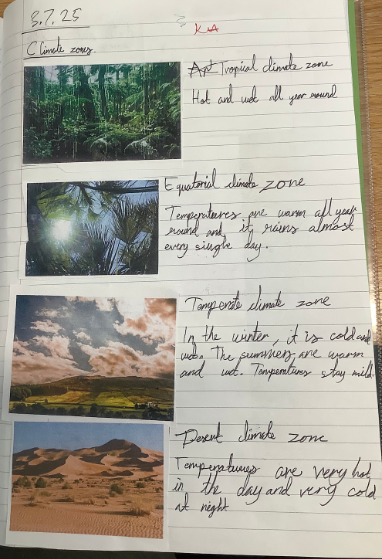 3.7.25
KA
Climate zones
Tropical climate zone
Hot and wet all year round
Equatorial climate zone
Temperatures are warm all year
round and it rains almost
every single day.
Temperate climate zone
In the winter, it is cold and
wet. The summers are warm
and wet. Temperatures stay mild.
Desert climate zone
Temperatures are very hot
in the day and very cold
at night